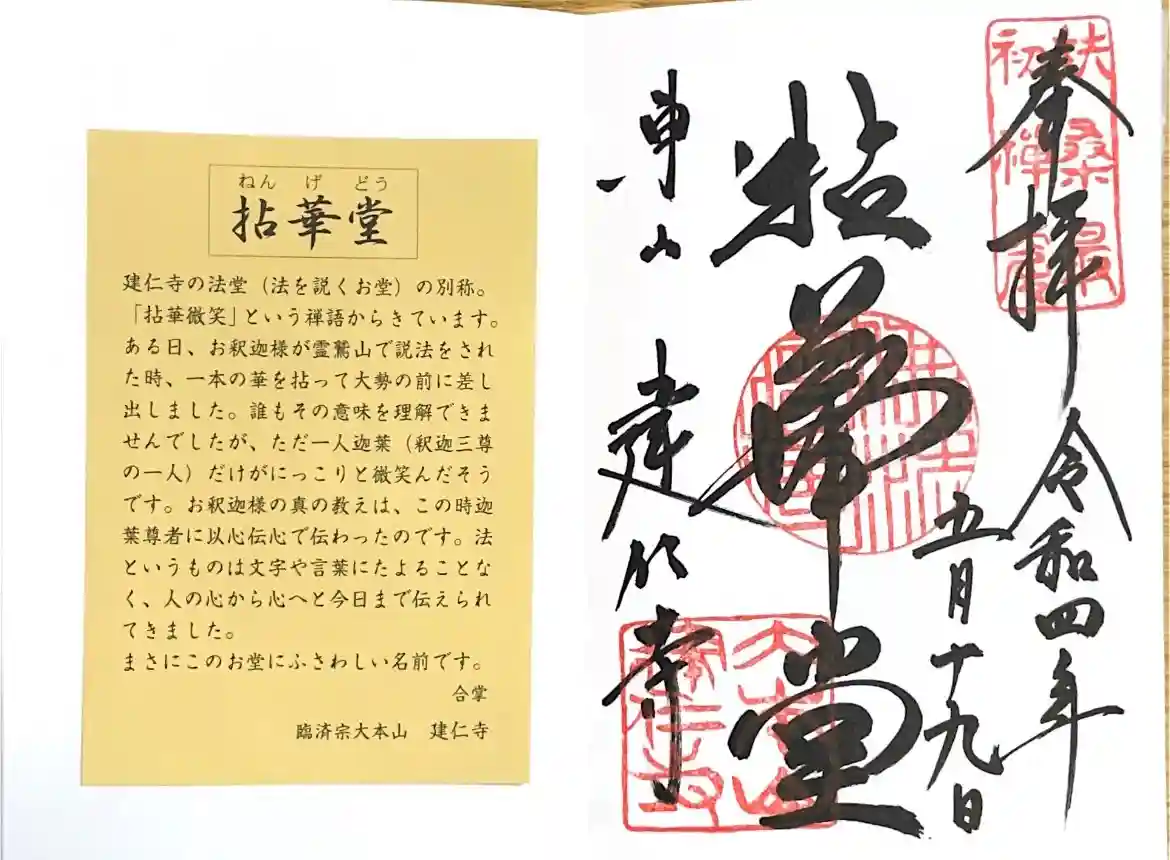 ねんげどう
拈華堂
建仁寺の法堂（法を説くお堂）の別称。
「拈華微笑」という禅語からきています。
ある日、お釈迦様が霊鷲山で説法をされ
た時、一本の華を拈って大勢の前に差し
出しました。誰もその意味を理解できま
せんでしたが、ただ一人迦葉（釈迦三尊
の一人）だけがにっこりと微笑んだそう
です。お釈迦様の真の教えは、この時迦
葉尊者に以心伝心で伝わったのです。法
というものは文字や言葉にたよることな
く、人の心から心へと今日まで伝えられ
てきました。
まさにこのお堂にふさわしい名前です。
合掌
臨済宗大本山　建仁寺
扶桑最
初禅窟
奉拝
令和四年
五月十九日
拈華堂
東山　建仁寺
大本山
建仁寺